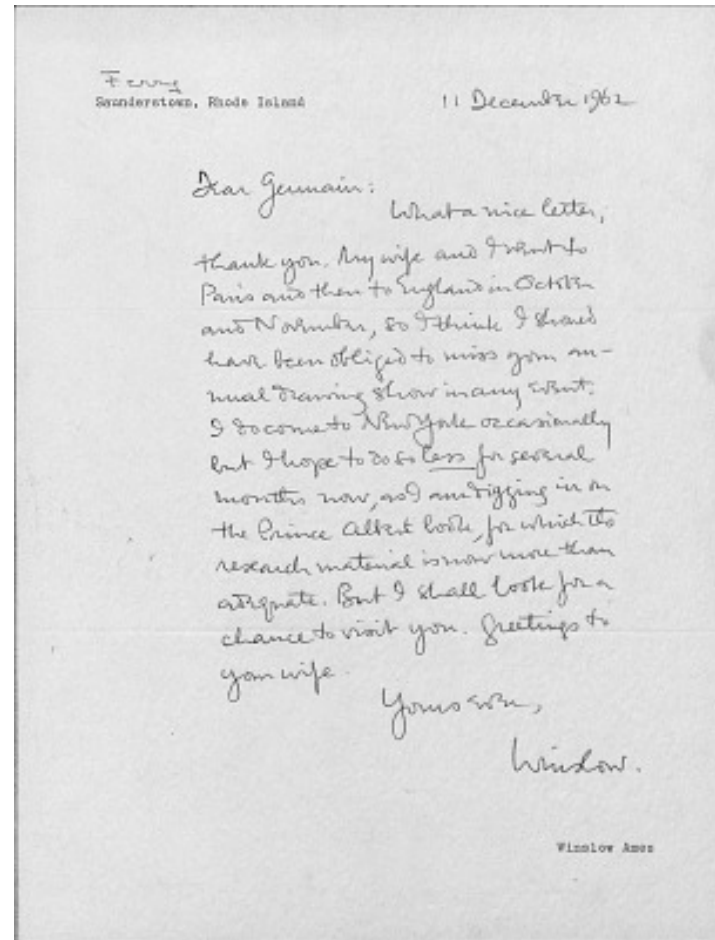 Saunderstown, Rhode Island
11 December 1962
Dear Germain:
What a nice letter,
thank you. My wife and I went to
Paris and then to England in October
and November, so I think I should
have been obliged to miss your an-
nual drawing show in any event.
I do come to New York occasionally
but I hope to do so less for several
months now, as I am digging in on
the Prince Albert book, for which the
research material is now more than
adequate. But I shall look for a
chance to visit you. Greetings to
your wife.
Yours ever,
Winslow.
Winslow Ames